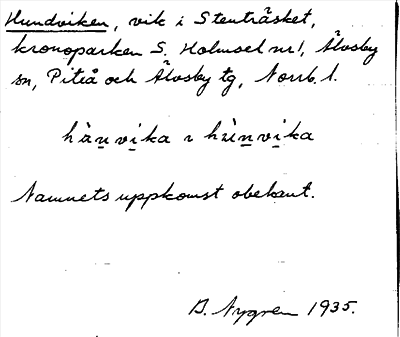 Hundviken, vik i Stenträsket,
kronoparken S. Holmsel nr 1, Älvsby
sn, Piteå och Älvsby tg, Norrb. l.
hàn̲vi̲ka ɿ hùn̲vi̲ka
Namnets uppkomst obekant.
D. Nygren 1935.